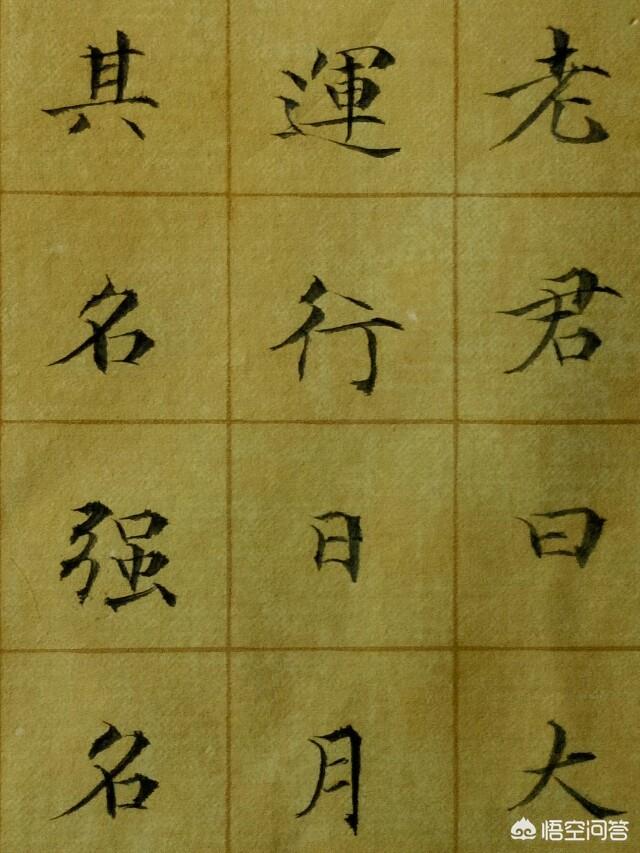 老君曰大
運行日月
其名强名
悟空问答